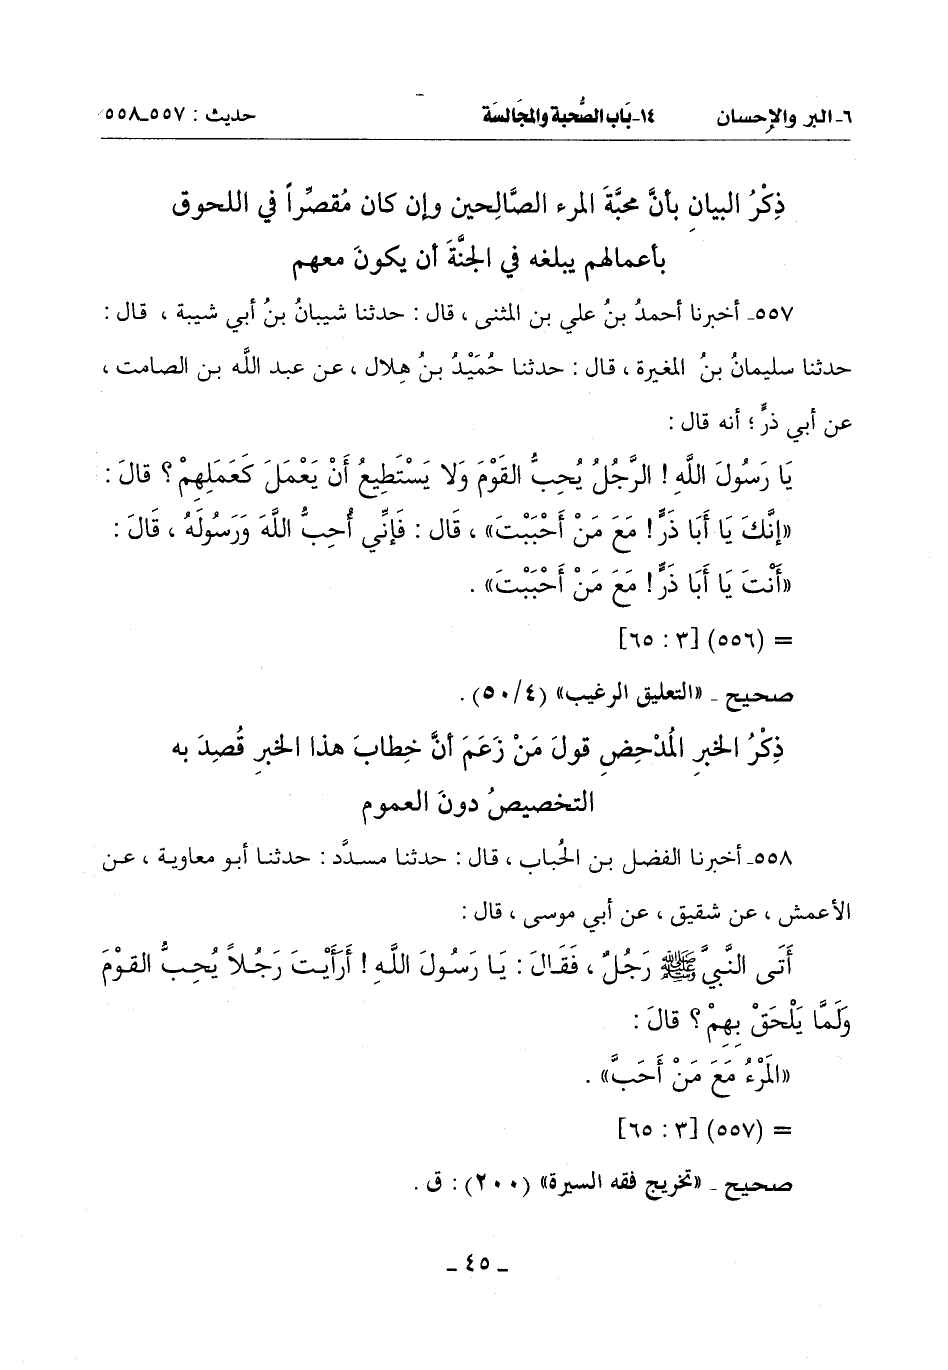 ٦- البر والإحسان ١٤- بَاب الصُّحبة والمجَالسَة حديث : ٥٥٧-٥٥٨
ذِكْرُ البيانِ بأنَّ محبَّةَ المرء الصَّالِحين وإن كان مُقصِّراً في اللحوق
بأعمالهم يبلغه في الجنَّةَ أن يكونَ معهم
٥٥٧- أخبرنا أحمدُ بنُ علي بن المثنى ، قال : حدثنا شيبانُ بنُ أبي شيبة ، قال :
حدثنا سليمانُ بنُ المغيرة ، قال : حدثنا حُمَيْدُ بنُ هلال ، عن عبد اللَّه بن الصامت ،
عن أبي ذرٍّ ؛ أنه قال :
يَا رَسُولَ اللَّهِ ! الرَّجُلُ يُحِبُّ القَوْمَ وَلا يَسْتَطِيعُ أَنْ يَعْمَلَ كَعَمَلِهِمْ ؟ قالَ :
«إنَّكَ يَا أَبَا ذَرٍّ ! مَعَ مَنْ أَحْبَبْتَ» ، قَالَ : فَإنِّي أُحِبُّ اللَّهَ وَرَسُولَهُ ، قَالَ :
«أَنْتَ يَا أَبَا ذَرٍّ ! مَعَ مَنْ أَحْبَبْتَ» .
= (٥٥٦) [٣ : ٦٥]
صحيح - «التعليق الرغيب» (٤/ ٥٠) .
ذِكْرُ الخبرِ المُدْحِضِ قولَ مَنْ زَعَمَ أنَّ خِطابَ هذا الخبرِ قُصِدَ به
التخصيصُ دونَ العموم
٥٥٨- أخبرنا الفضل بن الحُباب ، قال : حدثنا مسدَّد : حدثنا أبو معاوية ، عن
الأعمش ، عن شقيق ، عن أبي موسى ، قال :
أَتَى النَّبيَّ ﷺ رَجُلٌ ، فَقَالَ : يَا رَسُولَ اللَّهِ ! أرَأَيْتَ رَجُلاً يُحِبُّ القَوْمَ
وَلَمَّا يَلْحَقْ بِهِمْ ؟ قالَ :
«المَرْءُ مَعَ مَنْ أَحَبَّ» .
= (٥٥٧) [٣ : ٦٥]
صحيح - «تخريج فقه السيرة» (٢٠٠) : ق .
- ٤٥ -